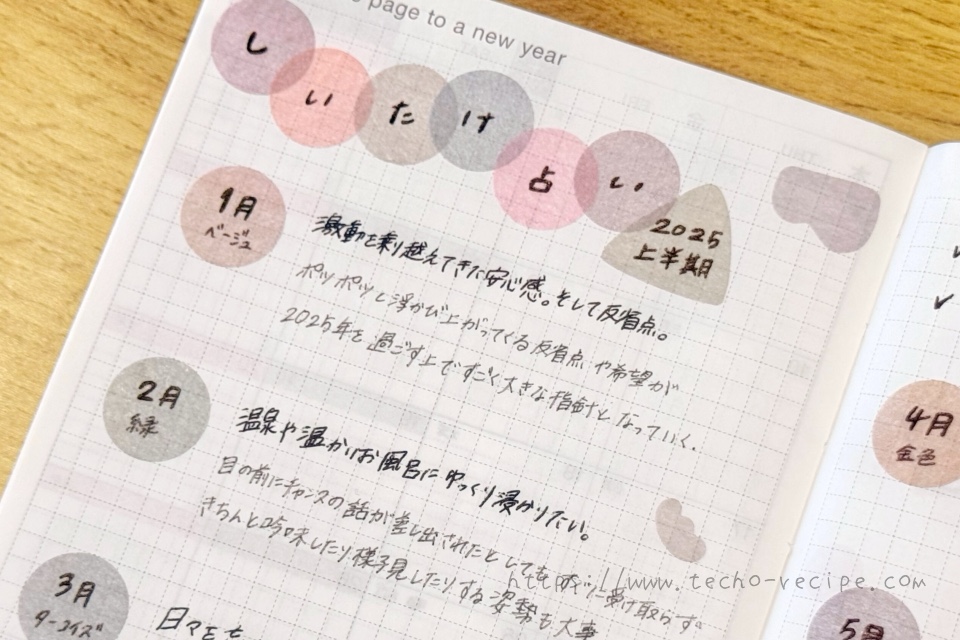 page to a new year
しいたけ占い
2025
上半期
1月
ベージュ
激動を乗り越えてきた安心感。そして反省点。
ポツポツと浮かび上がってくる反省点や希望が
2025年を過ごす上ですごく大きな指針となっていく。
2月
緑
温泉や温かいお風呂にゆっくり浸かりたい。
目の前にチャンスの話が差し出されたとしても すぐに受け取らず
きちんと吟味したり様子見したりする姿勢も大事
3月
ターコイズ
4月
金色
5月
https://www.techo-recipe.com